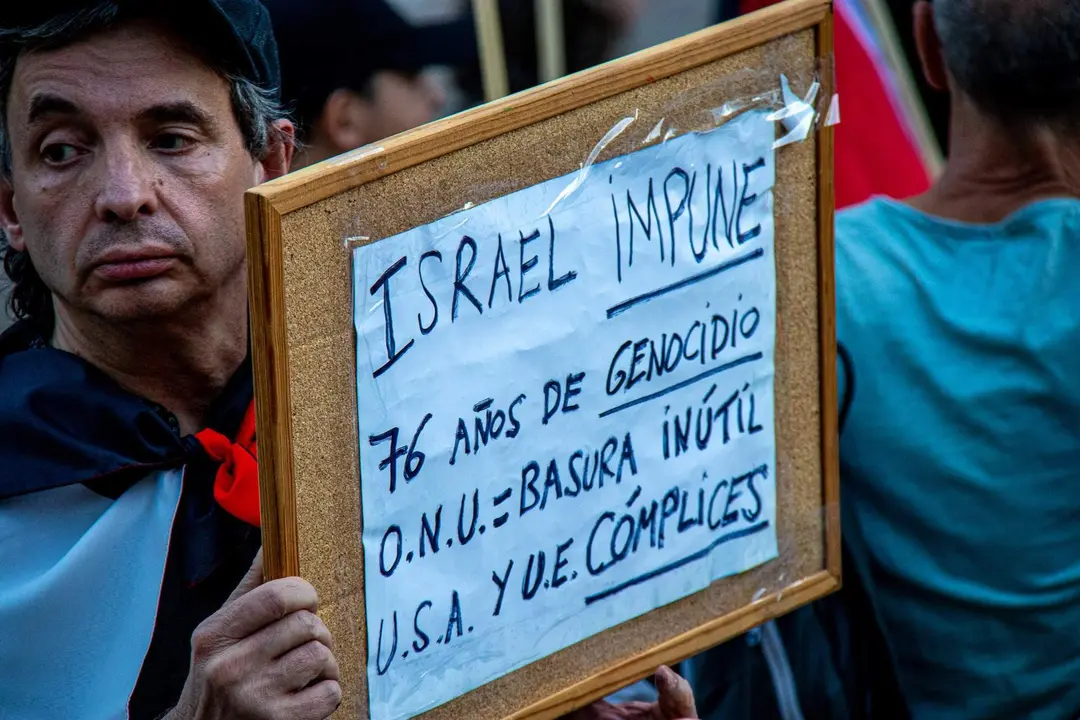 ISRAEL IMPUNE
76 AÑOS DE GENOCIDIO
O.N.U.=BASURA INÚTIL
U.S.A. Y U.E. CÓMPLICES